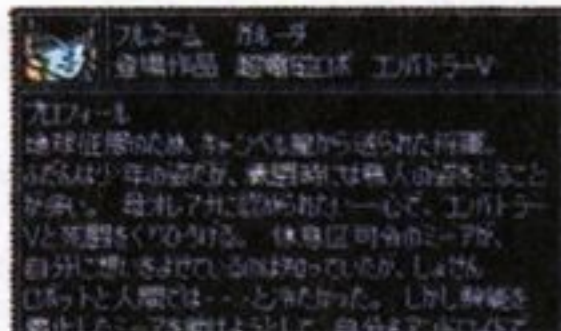 フルネーム ガルーダ
登場作品 超電磁ロボ コンバトラーV
プロフィール
地球征服のため、キャンベル星から送られた将軍。
ふだんは少年の姿だが、戦闘時には鳥人の姿をとること
が多い。 母オレアナに認められたい一心で、コンバトラー
Vと死闘をくりひろげる。 体 司令のミーアが、
自分に想いをよせているのは知っていたが、しょせん
ロボットと人間では・・・と冷たかった。 しかし機能を
停止したミーアを